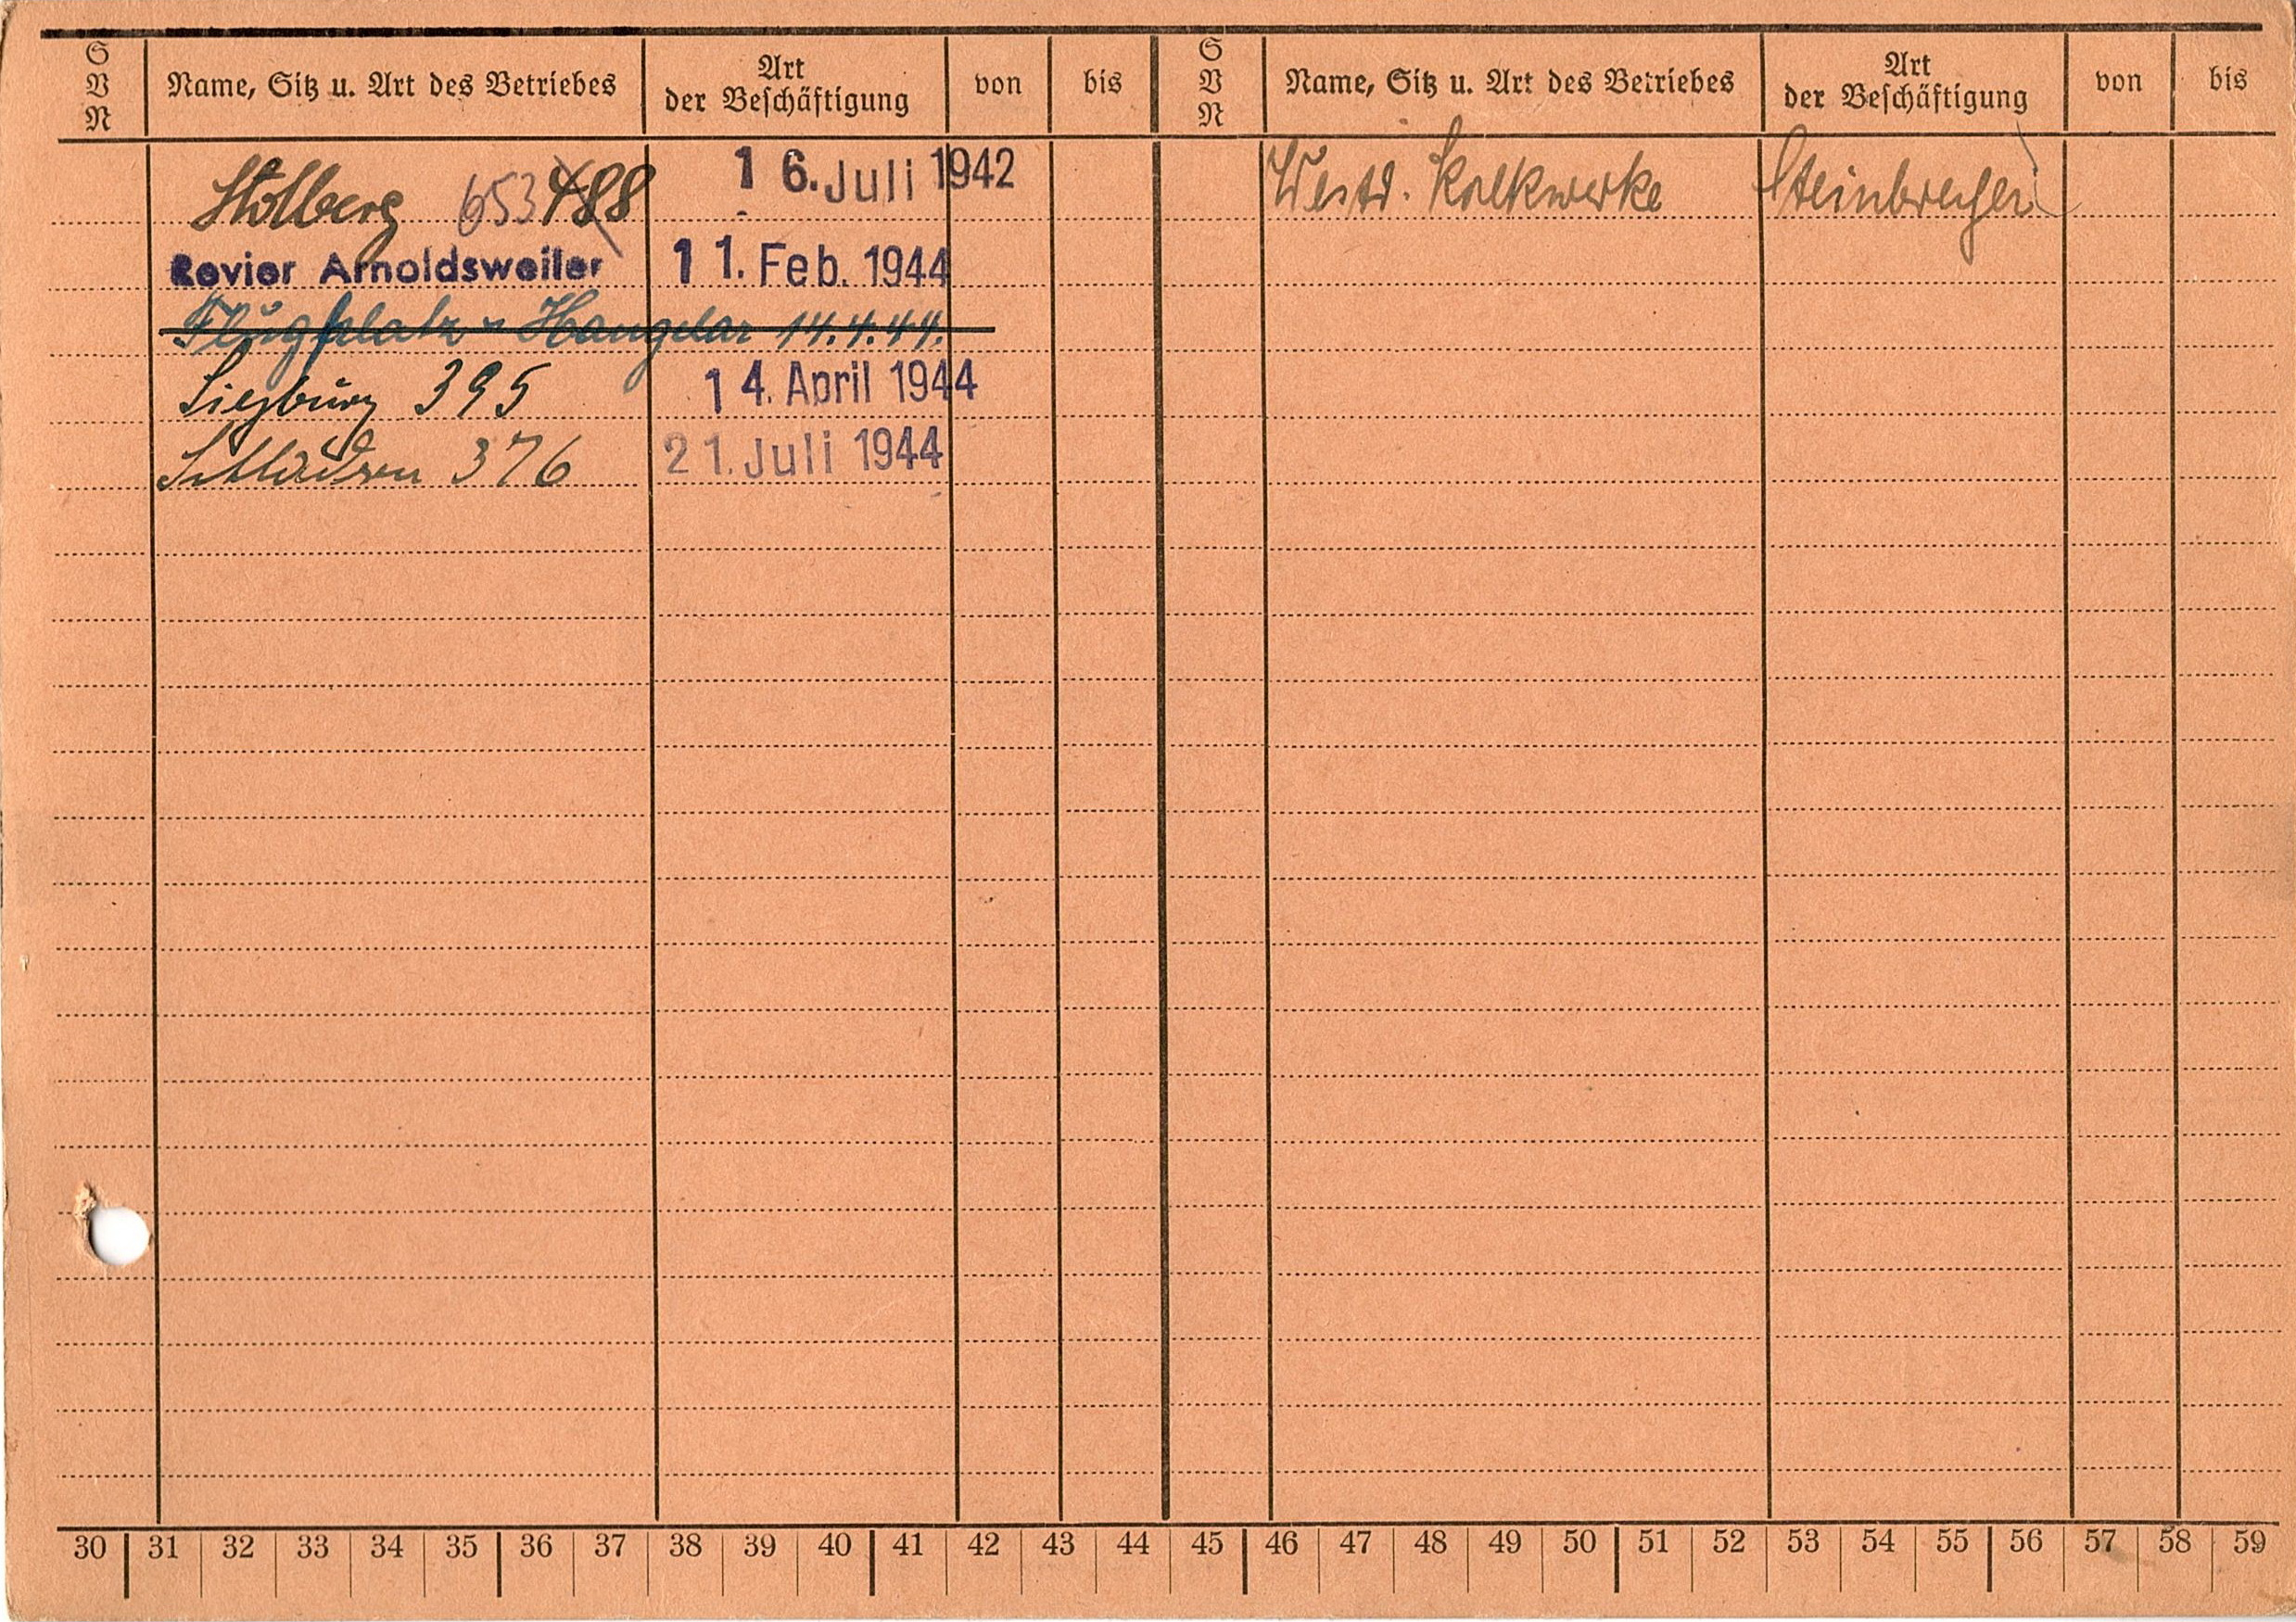 S V N
Name, Sitz u. Art des Betriebes
Art der Beschäftigung
von
bis
S V N
Name, Sitz u. Art des Betriebes
Art der Beschäftigung
von
bis
Stolberg 653 488 16. Juli 1942
Westd. Kalkwerke Steinbrecher
Revier Arnoldsweiler 11. Feb. 1944
Flugplatz - Hangelar 14.4.44.
Siegburg 395 14. April 1944
Schladern 376 21. Juli 1944
30 31 32 33 34 35 36 37 38 39 40 41 42 43 44 45 46 47 48 49 50 51 52 53 54 55 56 57 58 59